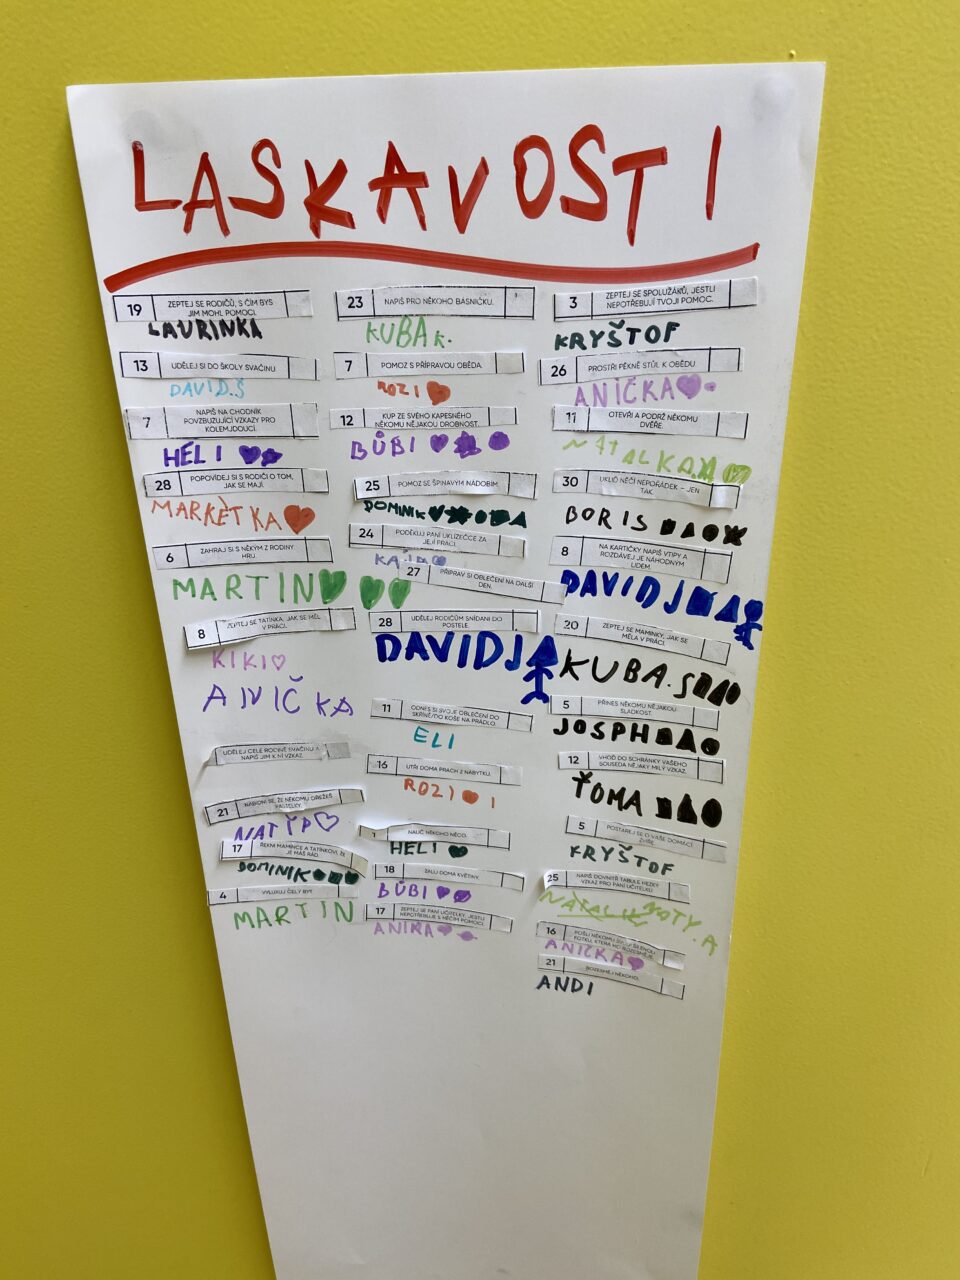 LASKAVOSTI
19 ZEPTEJ SE RODIČŮ, S ČÍM BYS
JIM MOHL POMOCI.
LAURINKA
13 UDĚLEJ SI DO ŠKOLY SVAČINU
DAVID.Š
7 NAPIŠ NA CHODNÍK
POVZBUZUJÍCÍ VZKAZY PRO
KOLEMJDOUCÍ.
HELI
28 POPOVÍDEJ SI S RODIČI O TOM,
JAK SE MAJÍ.
MARKÈTKA
6 ZAHRAJ SI S NĚKÝM Z RODINY
HRU.
MARTIN
8 ZEPTEJ SE TATÍNKA, JAK SE MĚL
V PRÁCI.
KIKI
ANIČKA
UDĚLEJ CELÉ RODINĚ SVAČINU A
NAPIŠ JIM K NÍ VZKAZ.
21 NABÍDNI SE, ŽE NĚKOMU OŘEŽEŠ
PASTELKY.
17 ŘEKNI MAMINCE A TATÍNKOVI, ŽE
JE MÁŠ RÁD.
DOMINIK
4 VYLUXUJ CELÝ BYT.
MARTIN
23 NAPIŠ PRO NĚKOHO BÁSNIČKU.
KUBA K.
7 POMOZ S PŘÍPRAVOU OBĚDA.
ROZI
12 KUP ZE SVÉHO KAPESNÉHO
NĚKOMU NĚJAKOU DROBNOST.
BŮBI
25 POMOZ SE ŠPINAVÝM NÁDOBÍM.
DOMINIK
24 PODĚKUJ PANÍ UKLÍZEČCE ZA
JEJÍ PRÁCI.
27 PŘIPRAV SI OBLEČENÍ NA DALŠÍ
DEN.
28 UDĚLEJ RODIČŮM SNÍDANI DO
POSTELE.
DAVIDJ
11 ODNES SI SVOJE OBLEČENÍ DO
SKŘÍNĚ/DO KOŠE NA PRÁDLO.
ELI
16 UTŘI DOMA PRACH Z NÁBYTKU.
ROZI
1 NAUČ NĚKOHO NĚCO.
HELI
18 ZALIJ DOMA KVĚTINY.
BŮBI
17 ZEPTEJ SE PANÍ UČITELKY, JESTLI
NEPOTŘEBUJE S NĚČÍM POMOCI
3 ZEPTEJ SE SPOLUŽÁKŮ, JESTLI
NEPOTŘEBUJÍ TVOJI POMOC.
KRYŠTOF
26 PROSTŘI PĚKNĚ STŮL K OBĚDU
ANIČKA
11 OTEVŘI A PODRŽ NĚKOMU
DVEŘE.
NATALKA.A
30 UKLIĎ NĚČÍ NEPOŘÁDEK – JEN
TAK.
BORIS
8 NA KARTIČKY NAPIŠ VTIPY A
ROZDÁVEJ JE NÁHODNÝM
LIDEM.
DAVIDJ
20 ZEPTEJ SE MAMINKY, JAK SE
MĚLA V PRÁCI.
KUBA.S
5 PŘINES NĚKOMU NĚJAKOU
SLADKOST.
JOSPH
12 VHOĎ DO SCHRÁNKY VAŠEHO
SOUSEDA NĚJAKÝ MILÝ VZKAZ.
ŤOMA
5 POSTAREJ SE O VAŠE DOMÁCÍ
ZVÍŘE.
KRYŠTOF
25 NAPIŠ DOVNITŘ TABULE HEZKÝ
VZKAZ PRO PANÍ UČITELKU
16 POŠLI NĚKOMU
ANIČKA
21 ROZESMĚJ NĚKOHO.
ANDI